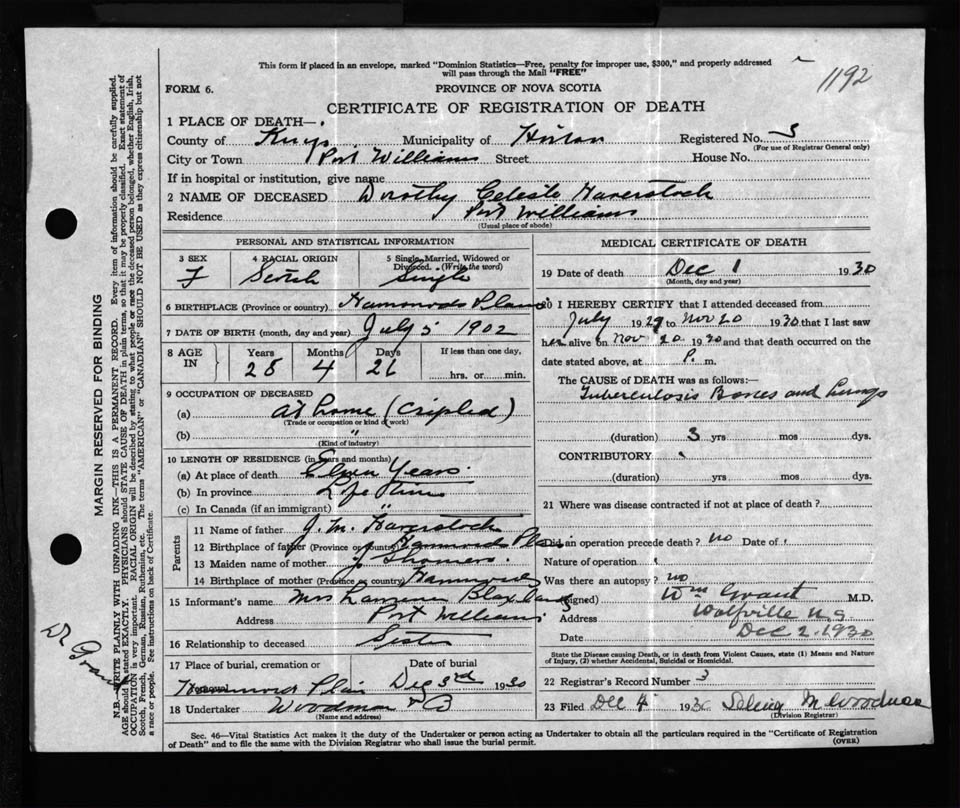 This form if placed in an envelope, marked "Dominion Statistics—Free, penalty for improper use, $300," and properly addressed
will pass through the Mail "FREE"
1192
FORM 6.
PROVINCE OF NOVA SCOTIA
CERTIFICATE OF REGISTRATION OF DEATH
1 PLACE OF DEATH—
County of Kings Municipality of Horton Registered No. 3
(For use of Registrar General only)
City or Town Port Williams Street House No.
If in hospital or institution, give name
2 NAME OF DECEASED Dorothy Celeste Haverstock
Residence Port Williams
(Usual place of abode)
PERSONAL AND STATISTICAL INFORMATION
3 SEX 4 RACIAL ORIGIN 5 Single, Married, Widowed or Divorced. (Write the word)
F Scotch Single
6 BIRTHPLACE (Province or country) Hammonds Plains
7 DATE OF BIRTH (month, day and year) July 5 1902
8 AGE IN Years Months Days If less than one day,
28 4 26 hrs. or min.
9 OCCUPATION OF DECEASED
(a) at home (Cripled)
(Trade or occupation or kind of work)
(b) "
(Kind of industry)
10 LENGTH OF RESIDENCE (in years and months)
(a) At place of death Years
(b) In province Life time
(c) In Canada (if an immigrant) "
Parents
11 Name of father J. M. Haverstock
12 Birthplace of father (Province or country) Hammonds Plain
13 Maiden name of mother
14 Birthplace of mother (Province or country) Hammonds
15 Informant's name Mrs
Address Port Williams
16 Relationship to deceased Sister
17 Place of burial, cremation or removal Date of burial
Hammond Plain Dec 3rd 1930
18 Undertaker Woodman
(Name and address)
MEDICAL CERTIFICATE OF DEATH
19 Date of death Dec 1 1930
(Month, day and year)
20 I HEREBY CERTIFY that I attended deceased from
July 1929 to Nov 20 1930 that I last saw
her alive on Nov 20 1930 and that death occurred on the
date stated above, at P. m.
The CAUSE OF DEATH was as follows:—
Tuberculosis Bones and Lungs
(duration) 3 yrs mos dys.
CONTRIBUTORY
(duration) yrs mos dys.
21 Where was disease contracted if not at place of death?
Did an operation precede death? no Date of
Nature of operation
Was there an autopsy? no
(Signed) Wm Grant M.D.
Address Wolfville N.S
Date Dec 2. 1930
State the Disease causing Death, or in death from Violent Causes, state (1) Means and
Nature of Injury, (2) whether Accidental, Suicidal or Homicidal.
22 Registrar's Record Number 3
23 Filed Dec 4 1930 Woodman
(Division Registrar)
Sec. 46—Vital Statistics Act makes it the duty of the Undertaker or person acting as Undertaker to obtain all the particulars required in the "Certificate of Registration
of Death" and to file the same with the Division Registrar who shall issue the burial permit.
(OVER)
MARGIN RESERVED FOR BINDING
N.B.—WRITE PLAINLY WITH UNFADING INK—THIS IS A PERMANENT RECORD. Every item of information should be carefully supplied.
AGE should be stated EXACTLY. PHYSICIANS should STATE CAUSE OF DEATH in plain terms, so that it may be properly classified. Exact statement of
OCCUPATION is very important. RACIAL ORIGIN will be described by stating to what people or race the deceased person belonged, whether English, Irish,
Scotch, French, German, Russian, Ruthenian, etc. The terms "AMERICAN" or "CANADIAN" SHOULD NOT BE USED as they express citizenship but not
a race or people. See instructions on back of Certificate.
Dr Grant